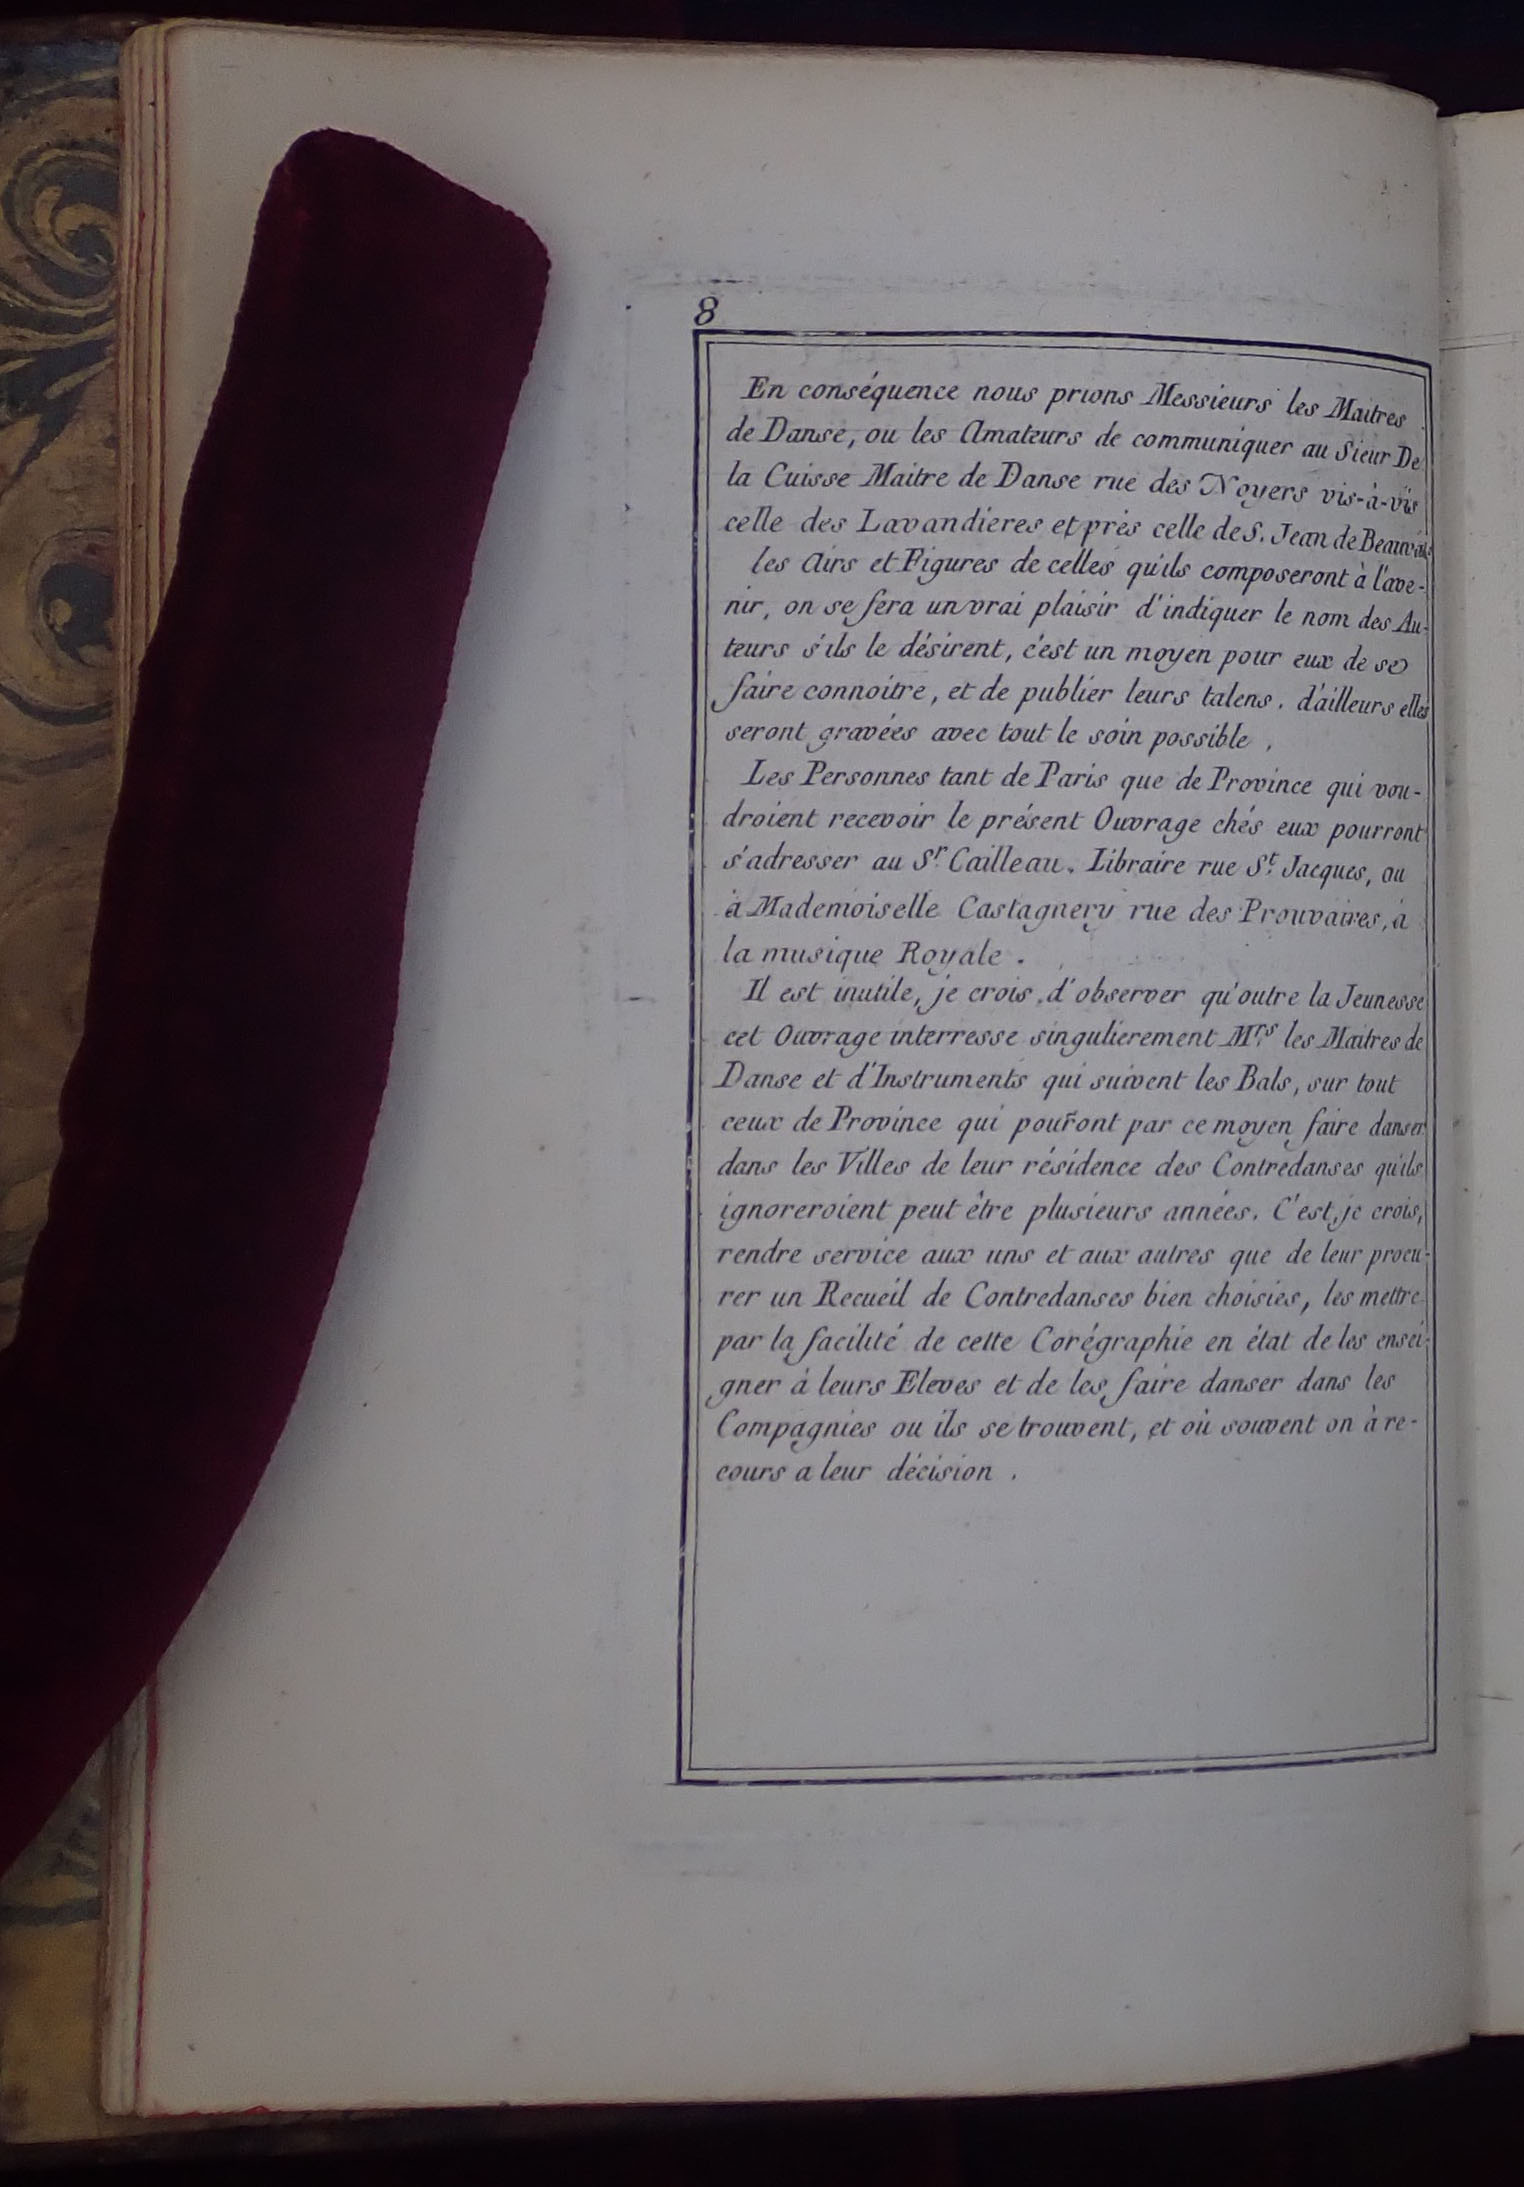 8
En conséquence nous prions Messieurs les Maitres
de Danse, ou les Amateurs de communiquer au Sieur De
la Cuisse Maitre de Danse rue des Noyers vis-à-vis
celle des Lavandieres et près celle de S. Jean de Beauvais
les Airs et Figures de celles qu'ils composeront à l'ave-
nir, on se fera un vrai plaisir d'indiquer le nom des Au-
teurs s'ils le désirent, c'est un moyen pour eux de se
faire connoitre, et de publier leurs talens. d'ailleurs elles
seront gravées avec tout le soin possible.
Les Personnes tant de Paris que de Province qui vou-
droient recevoir le présent Ouvrage chés eux pourront
s'adresser au Sr. Cailleau. Libraire rue St. Jacques, ou
à Mademoiselle Castagnery rue des Prouvaires, à
la musique Royale.
Il est inutile, je crois, d'observer qu'outre la Jeunesse
cet Ouvrage interresse singulierement Mrs. les Maitres de
Danse et d'Instruments qui suivent les Bals, sur tout
ceux de Province qui pour̃ont par ce moyen faire danser
dans les Villes de leur résidence des Contredanses qu'ils
ignoreroient peut être plusieurs années. C'est, je crois,
rendre service aux uns et aux autres que de leur procu-
rer un Recueil de Contredanses bien choisies, les mettre
par la facilité de cette Corégraphie en état de les ensei-
gner à leurs Eleves et de les faire danser dans les
Compagnies ou ils se trouvent, et où souvent on à re-
cours a leur décision.